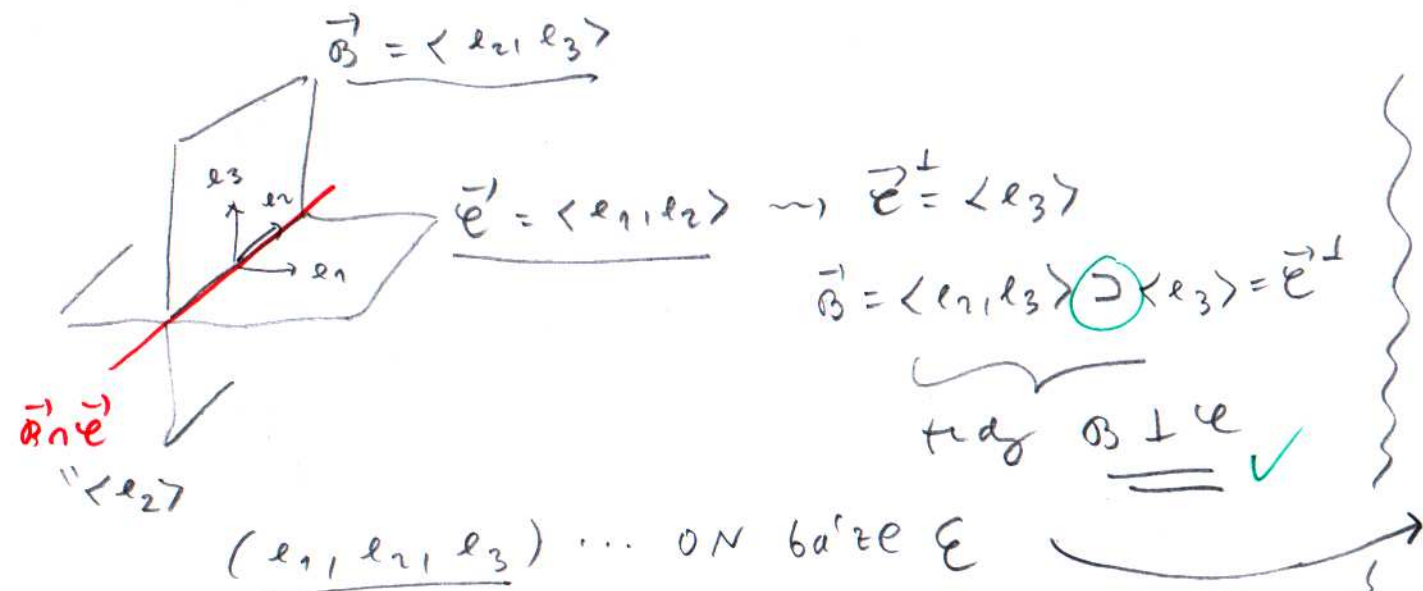 B⃗ = < e2, e3 >
e3
e2
e1
C⃗ = < e1, e2 > ⇝ C⃗^⊥ = < e3 >
B⃗ = < e2, e3 > ⊃ < e3 > = C⃗^⊥
B⃗ ∩ C⃗
" < e2 >
tedy B ⊥ C ✓
(e1, e2, e3) ... ON báze E